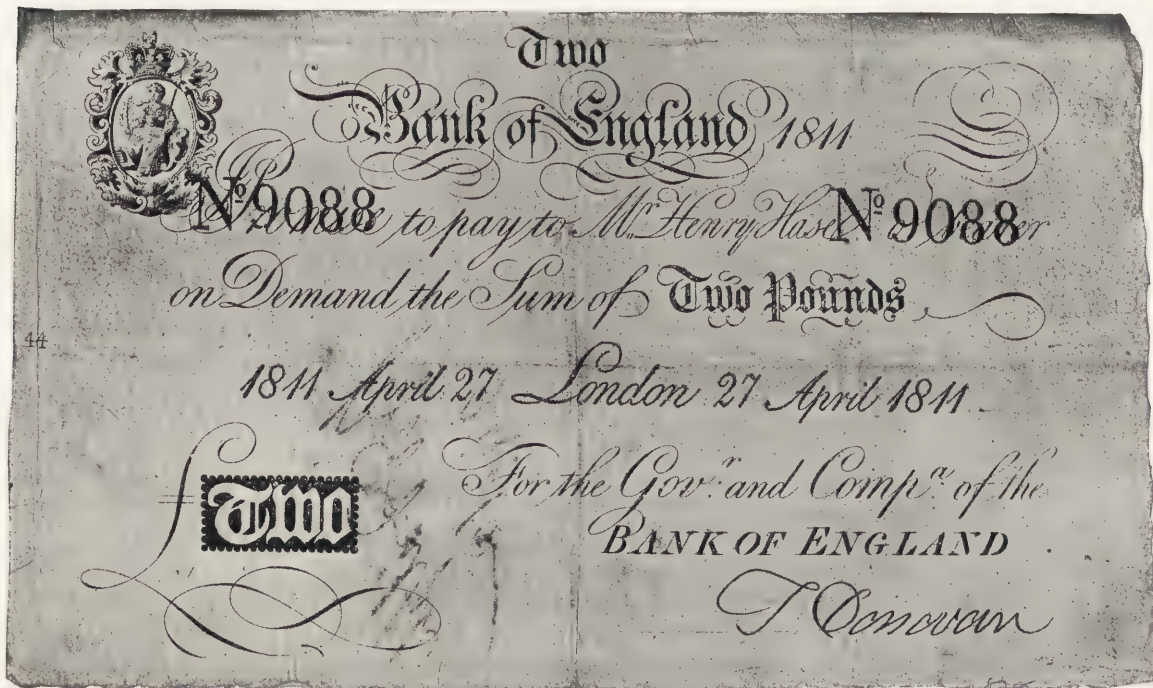 Two
Bank of England 1811
Nº 9088 Nº 9088
to pay to Mr. Henry Hase
on Demand the Sum of Two Pounds
44
1811 April 27 London 27 April 1811
For the Govr. and Compa. of the
£ Two
BANK OF ENGLAND
T Donovan